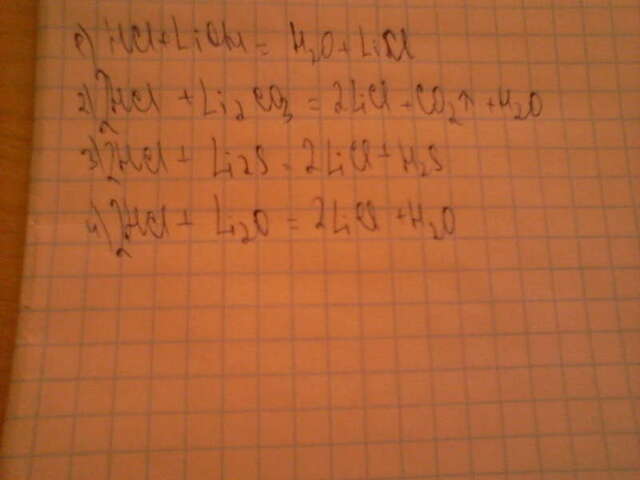 1) HCl + LiOH = H₂O + LiCl
2) 2HCl + Li₂CO₃ = 2LiCl + CO₂↑ + H₂O
3) 2HCl + Li₂S = 2LiCl + H₂S
4) 2HCl + Li₂O = 2LiCl + H₂O